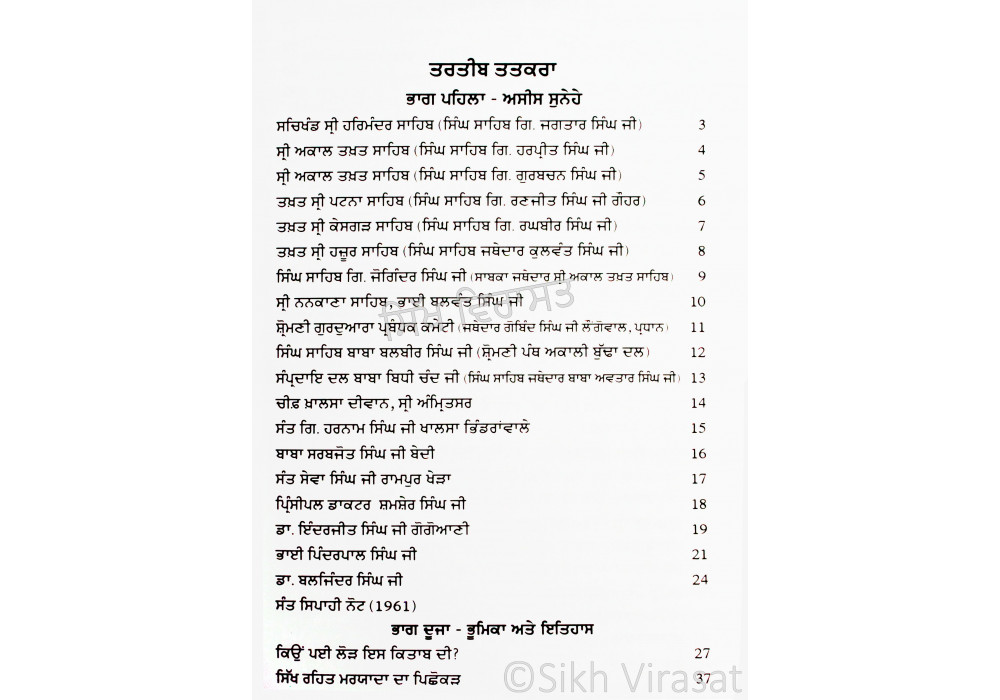 ਤਰਤੀਬ ਤਤਕਰਾ
ਭਾਗ ਪਹਿਲਾ - ਅਸੀਸ ਸੁਨੇਹੇ
ਸਚਿਖੰਡ ਸ੍ਰੀ ਹਰਿਮੰਦਰ ਸਾਹਿਬ (ਸਿੰਘ ਸਾਹਿਬ ਗਿ. ਜਗਤਾਰ ਸਿੰਘ ਜੀ) 3
ਸ੍ਰੀ ਅਕਾਲ ਤਖ਼ਤ ਸਾਹਿਬ (ਸਿੰਘ ਸਾਹਿਬ ਗਿ. ਹਰਪ੍ਰੀਤ ਸਿੰਘ ਜੀ) 4
ਸ੍ਰੀ ਅਕਾਲ ਤਖ਼ਤ ਸਾਹਿਬ (ਸਿੰਘ ਸਾਹਿਬ ਗਿ. ਗੁਰਬਚਨ ਸਿੰਘ ਜੀ) 5
ਤਖ਼ਤ ਸ੍ਰੀ ਪਟਨਾ ਸਾਹਿਬ (ਸਿੰਘ ਸਾਹਿਬ ਗਿ. ਰਣਜੀਤ ਸਿੰਘ ਜੀ ਗੌਹਰ) 6
ਤਖ਼ਤ ਸ੍ਰੀ ਕੇਸਗੜ ਸਾਹਿਬ (ਸਿੰਘ ਸਾਹਿਬ ਗਿ. ਰਘਬੀਰ ਸਿੰਘ ਜੀ) 7
ਤਖ਼ਤ ਸ੍ਰੀ ਹਜ਼ੂਰ ਸਾਹਿਬ (ਸਿੰਘ ਸਾਹਿਬ ਜਥੇਦਾਰ ਕੁਲਵੰਤ ਸਿੰਘ ਜੀ) 8
ਸਿੰਘ ਸਾਹਿਬ ਗਿ. ਜੋਗਿੰਦਰ ਸਿੰਘ ਜੀ (ਸਾਬਕਾ ਜਥੇਦਾਰ ਸ੍ਰੀ ਅਕਾਲ ਤਖ਼ਤ ਸਾਹਿਬ) 9
ਸ੍ਰੀ ਨਨਕਾਣਾ ਸਾਹਿਬ, ਭਾਈ ਬਲਵੰਤ ਸਿੰਘ ਜੀ 10
ਸ਼੍ਰੋਮਣੀ ਗੁਰਦੁਆਰਾ ਪ੍ਰਬੰਧਕ ਕਮੇਟੀ (ਜਥੇਦਾਰ ਗੋਬਿੰਦ ਸਿੰਘ ਜੀ ਲੌਂਗੋਵਾਲ, ਪ੍ਰਧਾਨ) 11
ਸਿੰਘ ਸਾਹਿਬ ਬਾਬਾ ਬਲਬੀਰ ਸਿੰਘ ਜੀ (ਸ਼੍ਰੋਮਣੀ ਪੰਥ ਅਕਾਲੀ ਬੁੱਢਾ ਦਲ) 12
ਸੰਪ੍ਰਦਾਇ ਦਲ ਬਾਬਾ ਬਿਧੀ ਚੰਦ ਜੀ (ਸਿੰਘ ਸਾਹਿਬ ਜਥੇਦਾਰ ਬਾਬਾ ਅਵਤਾਰ ਸਿੰਘ ਜੀ) 13
ਚੀਫ਼ ਖ਼ਾਲਸਾ ਦੀਵਾਨ, ਸ੍ਰੀ ਅੰਮ੍ਰਿਤਸਰ 14
ਸੰਤ ਗਿ. ਹਰਨਾਮ ਸਿੰਘ ਜੀ ਖਾਲਸਾ ਭਿੰਡਰਾਂਵਾਲੇ 15
ਬਾਬਾ ਸਰਬਜੋਤ ਸਿੰਘ ਜੀ ਬੇਦੀ 16
ਸੰਤ ਸੇਵਾ ਸਿੰਘ ਜੀ ਰਾਮਪੁਰ ਖੇੜਾ 17
ਪ੍ਰਿੰਸੀਪਲ ਡਾਕਟਰ ਸ਼ਮਸ਼ੇਰ ਸਿੰਘ ਜੀ 18
ਡਾ. ਇੰਦਰਜੀਤ ਸਿੰਘ ਜੀ ਗੋਗੋਆਣੀ 19
ਭਾਈ ਪਿੰਦਰਪਾਲ ਸਿੰਘ ਜੀ 21
ਡਾ. ਬਲਜਿੰਦਰ ਸਿੰਘ ਜੀ 24
ਸੰਤ ਸਿਪਾਹੀ ਨੋਟ (1961)
ਭਾਗ ਦੂਜਾ - ਭੂਮਿਕਾ ਅਤੇ ਇਤਿਹਾਸ
ਕਿਉਂ ਪਈ ਲੋੜ ਇਸ ਕਿਤਾਬ ਦੀ? 27
ਸਿੱਖ ਰਹਿਤ ਮਰਯਾਦਾ ਦਾ ਪਿਛੋਕੜ 37
ਸਿੱਖ ਵਿਰਾਸਤ
©Sikh Virasat